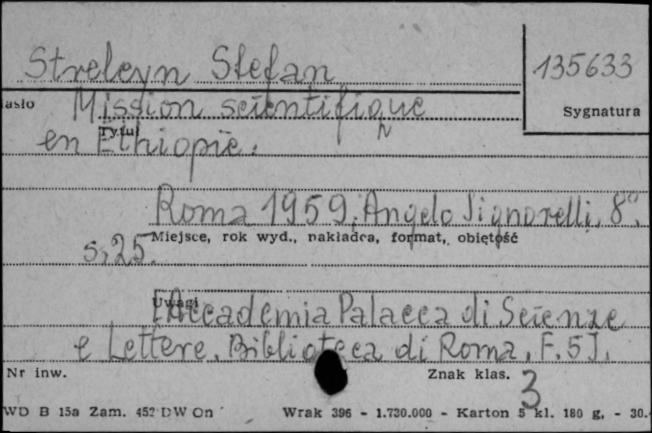 Strelcyn Stefan
135633
asło
Mission scientifique
Sygnatura
Tytuł
en Ethiopie.
Roma 1959, Angelo Signorelli, 8°,
Miejsce, rok wyd., nakładca, format, objętość
s. 25.
Uwagi
[Accademia Polacca di Scienze
e Lettere. Biblioteca di Roma, F. 5].
Nr inw.
Znak klas.
3
WD B 15a Zam. 452 DW On
Wrak 396 - 1.730.000 - Karton 5 kl. 180 g, - 30.